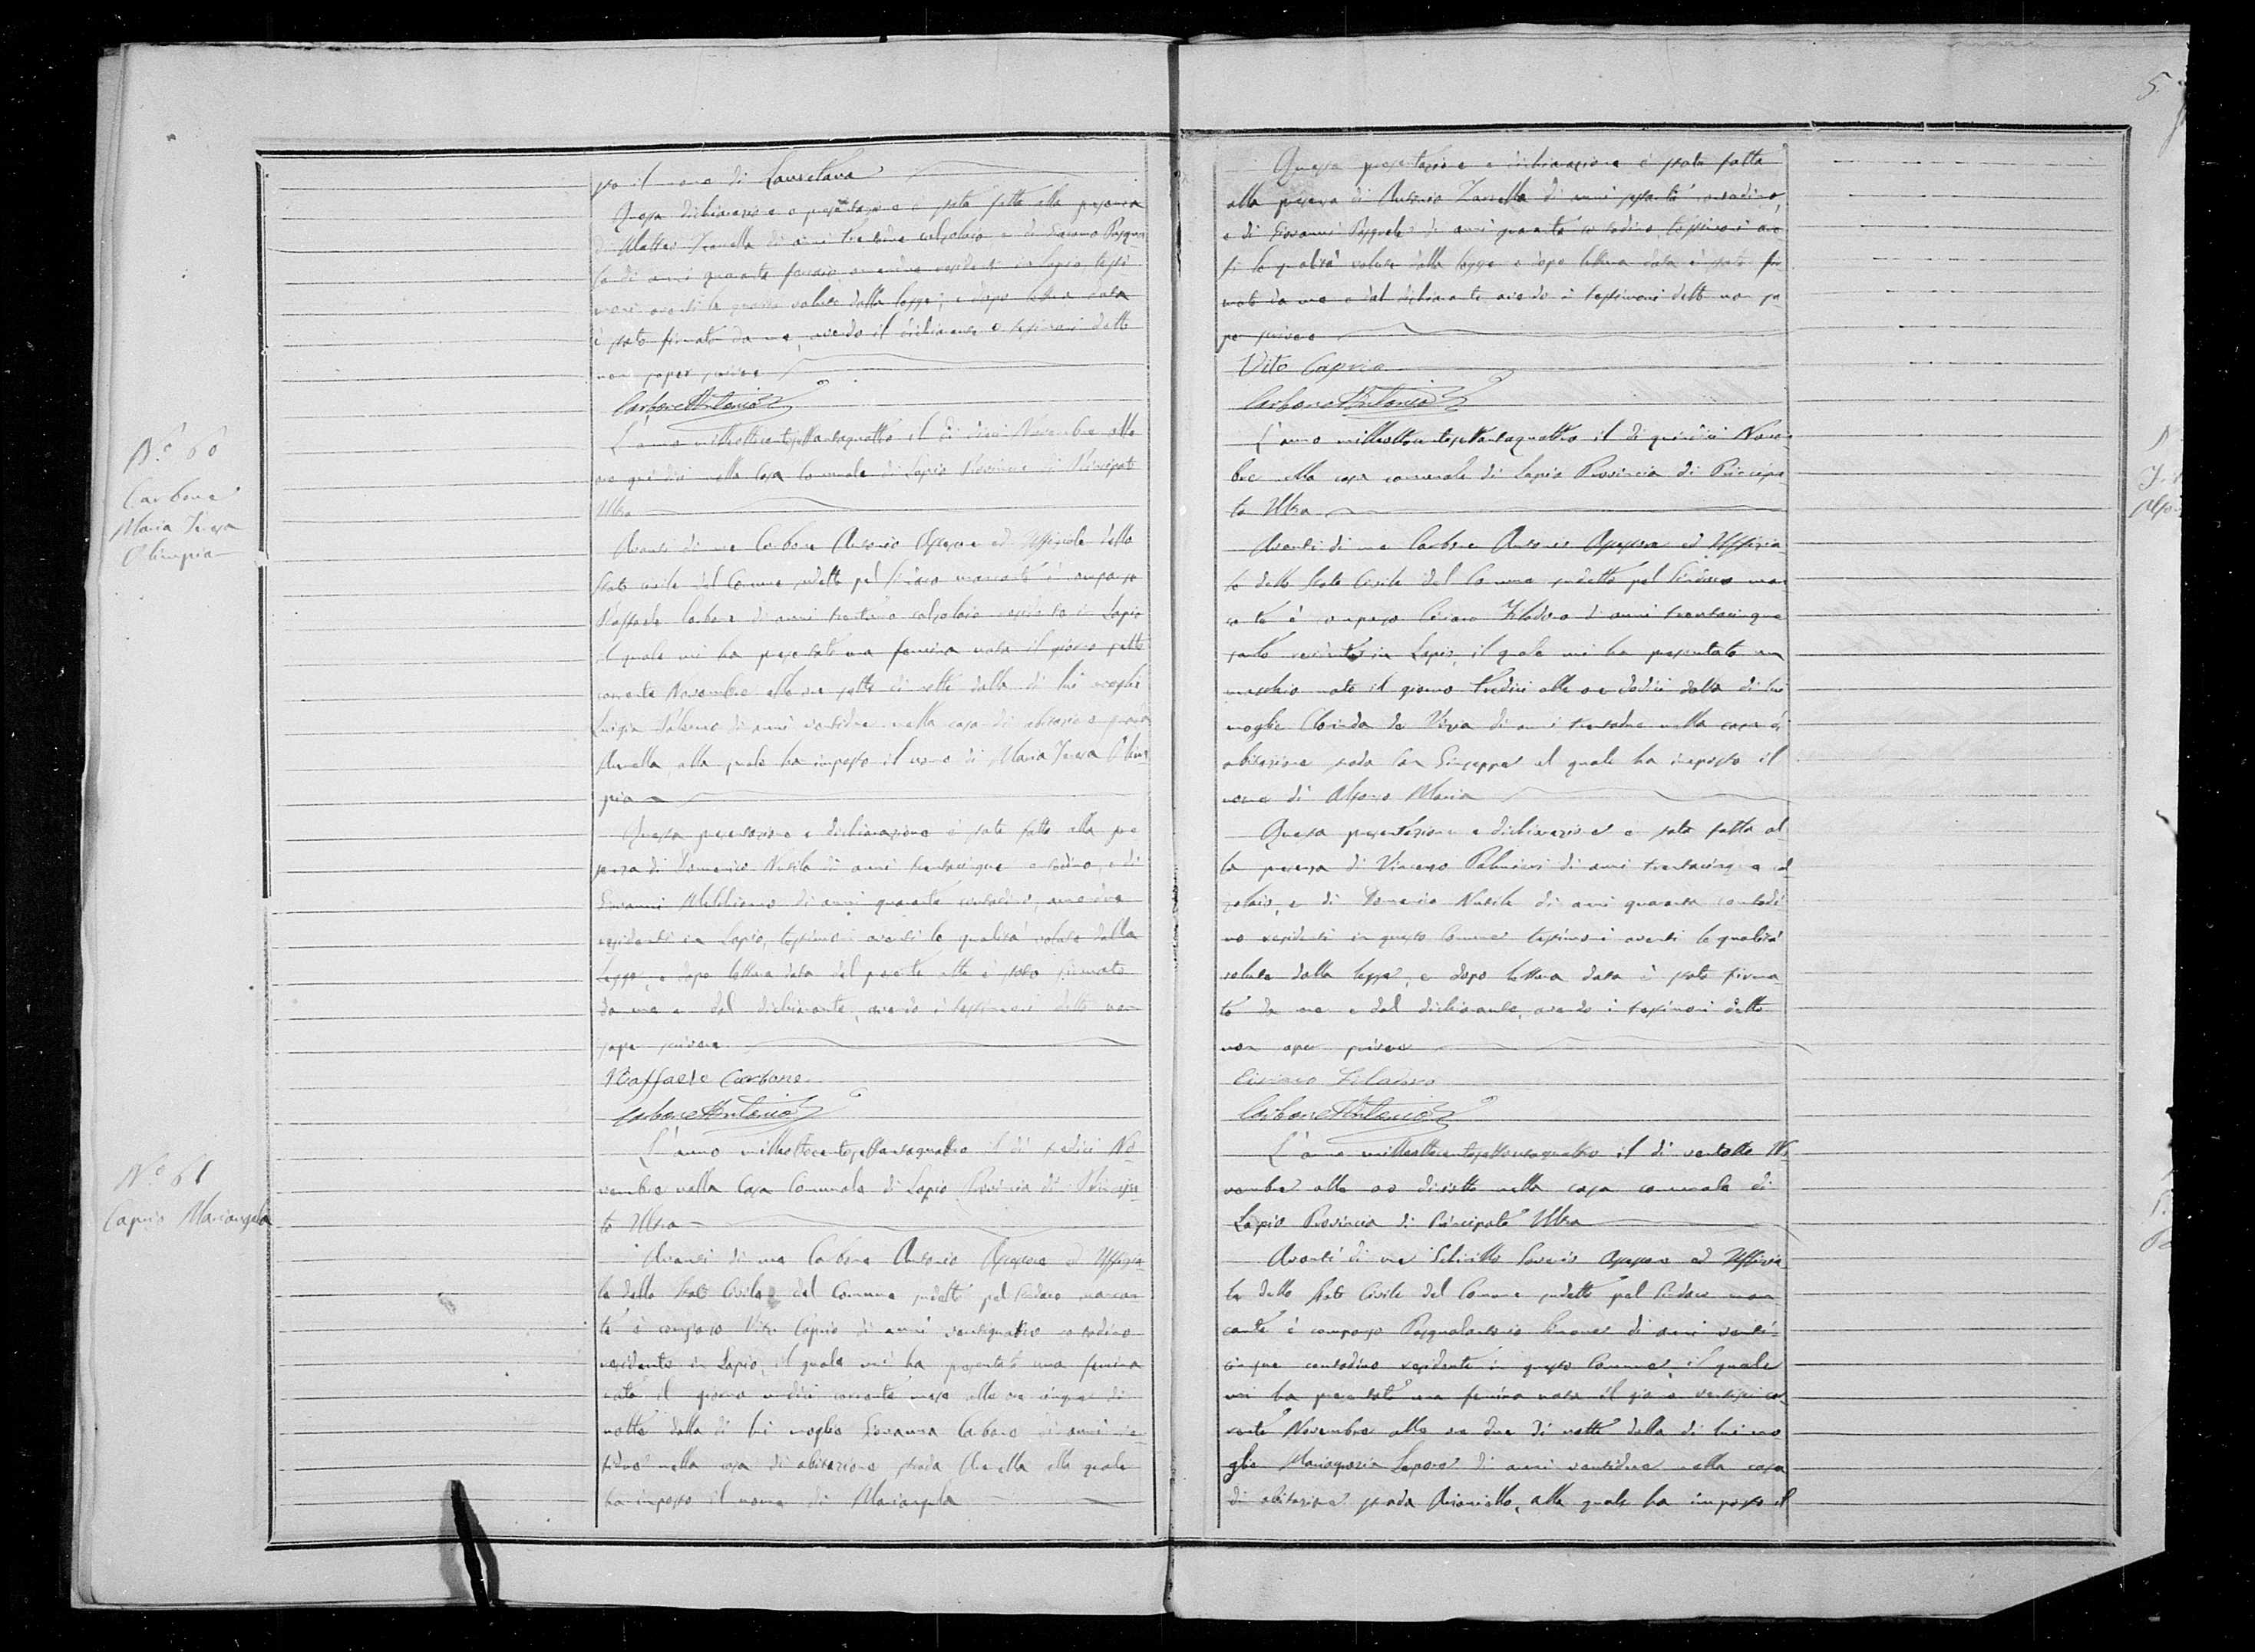 sto il nome di Lauretana
Questa dichiarazione e presentazione è stata fatta alla presenza
di Matteo Iannella di anni trentadue calzolaio e di
di anni quaranta amendue residenti in Lapio, testi-
moni aventi le qualità volute dalla legge, e dopo lettura data
è stato firmato da me, avendo il dichiarante e testimoni detto
non saper scrivere
Carbone Antonio
N.º 60
Carbone
Maria Teresa
Olimpia
L'anno milleottocentosettantaquattro il dì dieci Novembre alle
ore quindici nella Casa Comunale di Lapio Provincia di Principato
Ultra
Avanti di me Carbone Antonio Assessore ed Uffiziale dello
Stato civile del Comune sudetto pel Sindaco mancante è comparso
Raffaele Carbone di anni calzolaio residente in Lapio
il quale mi ha presentato una femina nata il giorno sette
corrente Novembre alle ore sette di notte dalla di lui moglie
Luigia di anni ventidue nella casa di abitazione strada
alla quale ha imposto il nome di Maria Teresa Olim-
pia
Questa presentazione e dichiarazione è stata fatta alla pre-
senza di Domenico Nusile di anni trentacinque contadino, e di
Giovanni di anni quaranta contadino, amendue
residenti in Lapio, testimoni aventi le qualità volute dalla
legge, e dopo lettura data del presente atto è stato firmato
da me e dal dichiarante, avendo i testimoni detto non
saper scrivere
Raffaele Carbone
Carbone Antonio
N.º 61
Caprio Mariangela
L'anno milleottocentosettantaquattro il dì tredici No-
vembre nella Casa Comunale di Lapio Provincia di Principa-
to Ultra
Avanti di me Carbone Antonio Assessore ed Uffizia-
le dello Stato Civile del Comune sudetto pel Sindaco mancan-
te è comparso Vito Caprio di anni ventiquattro contadino
residente in Lapio, il quale mi ha presentato una femina
nata il giorno undici corrente mese alle ore cinque di
notte dalla di lui moglie Giovanna Carbone di anni ven-
tidue nella casa di abitazione strada alla quale
ha imposto il nome di Mariangela
5
Questa presentazione e dichiarazione è stata fatta
alla presenza di Antonio Iannella di anni sessanta contadino,
e di Giovanni Pasquale di anni quaranta contadino testimoni aven-
ti le qualità volute dalla legge e dopo lettura data è stato fir-
mato da me e dal dichiarante avendo i testimoni detto non sa-
per scrivere
Vito Caprio
Carbone Antonio
L'anno milleottocentosettantaquattro il dì quindici Novem-
bre nella casa comunale di Lapio Provincia di Principa-
to Ultra
Avanti di me Carbone Antonio Assessore ed Uffizia-
le dello Stato Civile del Comune sudetto pel Sindaco man-
cante è comparso Ciriaco Filadoro di anni trentacinque
sarto residente in Lapio, il quale mi ha presentato un
maschio nato il giorno tredici alle ore dodici dalla di lui
moglie Clorinda de Vivo di anni trentadue nella casa di
abitazione strada San Giuseppe al quale ha imposto il
nome di Alfonso Maria
Questa presentazione e dichiarazione è stata fatta al-
la presenza di Vincenzo Palmieri di anni trentacinque cal-
zolaio, e di Domenico Nusile di anni quaranta contadi-
no residenti in questo Comune testimoni aventi le qualità
volute dalla legge, e dopo lettura data è stato firma-
to da me e dal dichiarante, avendo i testimoni detto
non saper scrivere
Ciriaco Filadoro
Carbone Antonio
L'anno milleottocentosettantaquattro il dì ventotto No-
vembre alle ore diciotto nella casa comunale di
Lapio Provincia di Principato Ultra
Avanti di me Schirillo Saverio Assessore ed Uffizia-
le dello Stato Civile del Comune sudetto pel Sindaco man-
cante è comparso Pasqualantonio di anni venti-
cinque contadino residente in questo Comune, il quale
mi ha presentato una femina nata il giorno ventisei cor-
rente Novembre alle ore due di notte dalla di lui mo-
glie Mariagrazia Lepore di anni ventidue nella casa
di abitazione strada alla quale ha imposto il